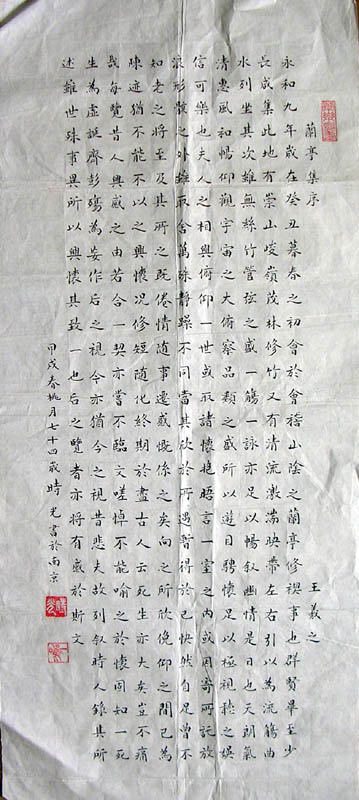 蘭亭集序 王羲之
永和九年歲在癸丑暮春之初會於會稽山陰之蘭亭修禊事也群賢畢至少
長咸集此地有崇山峻嶺茂林修竹又有清流激湍映帶左右引以為流觴曲
水列坐其次雖無絲竹管弦之盛一觴一詠亦足以暢敘幽情是日也天朗氣
清惠風和暢仰觀宇宙之大俯察品類之盛所以遊目騁懷足以極視聽之娛
信可樂也夫人之相與俯仰一世或取諸懷抱晤言一室之內或因寄所託放
浪形骸之外雖取舍萬殊靜躁不同當其欣於所遇暫得於己快然自足曾不
知老之將至及其所之既倦情隨事遷感慨係之矣向之所欣俛仰之間已為
陳迹猶不能不以之興懷況修短隨化終期於盡古人云死生亦大矣豈不痛
哉每覽昔人興感之由若合一契亦嘗不臨文嗟悼不能喻之於懷固知一死
生為虛誕齊彭殤為妄作后之視今亦猶今之視昔悲夫故列敘時人錄其所
述雖世殊事異所以興懷其致一也后之覽者亦將有感於斯文
甲戌春桃月七十四歲時光書於南京